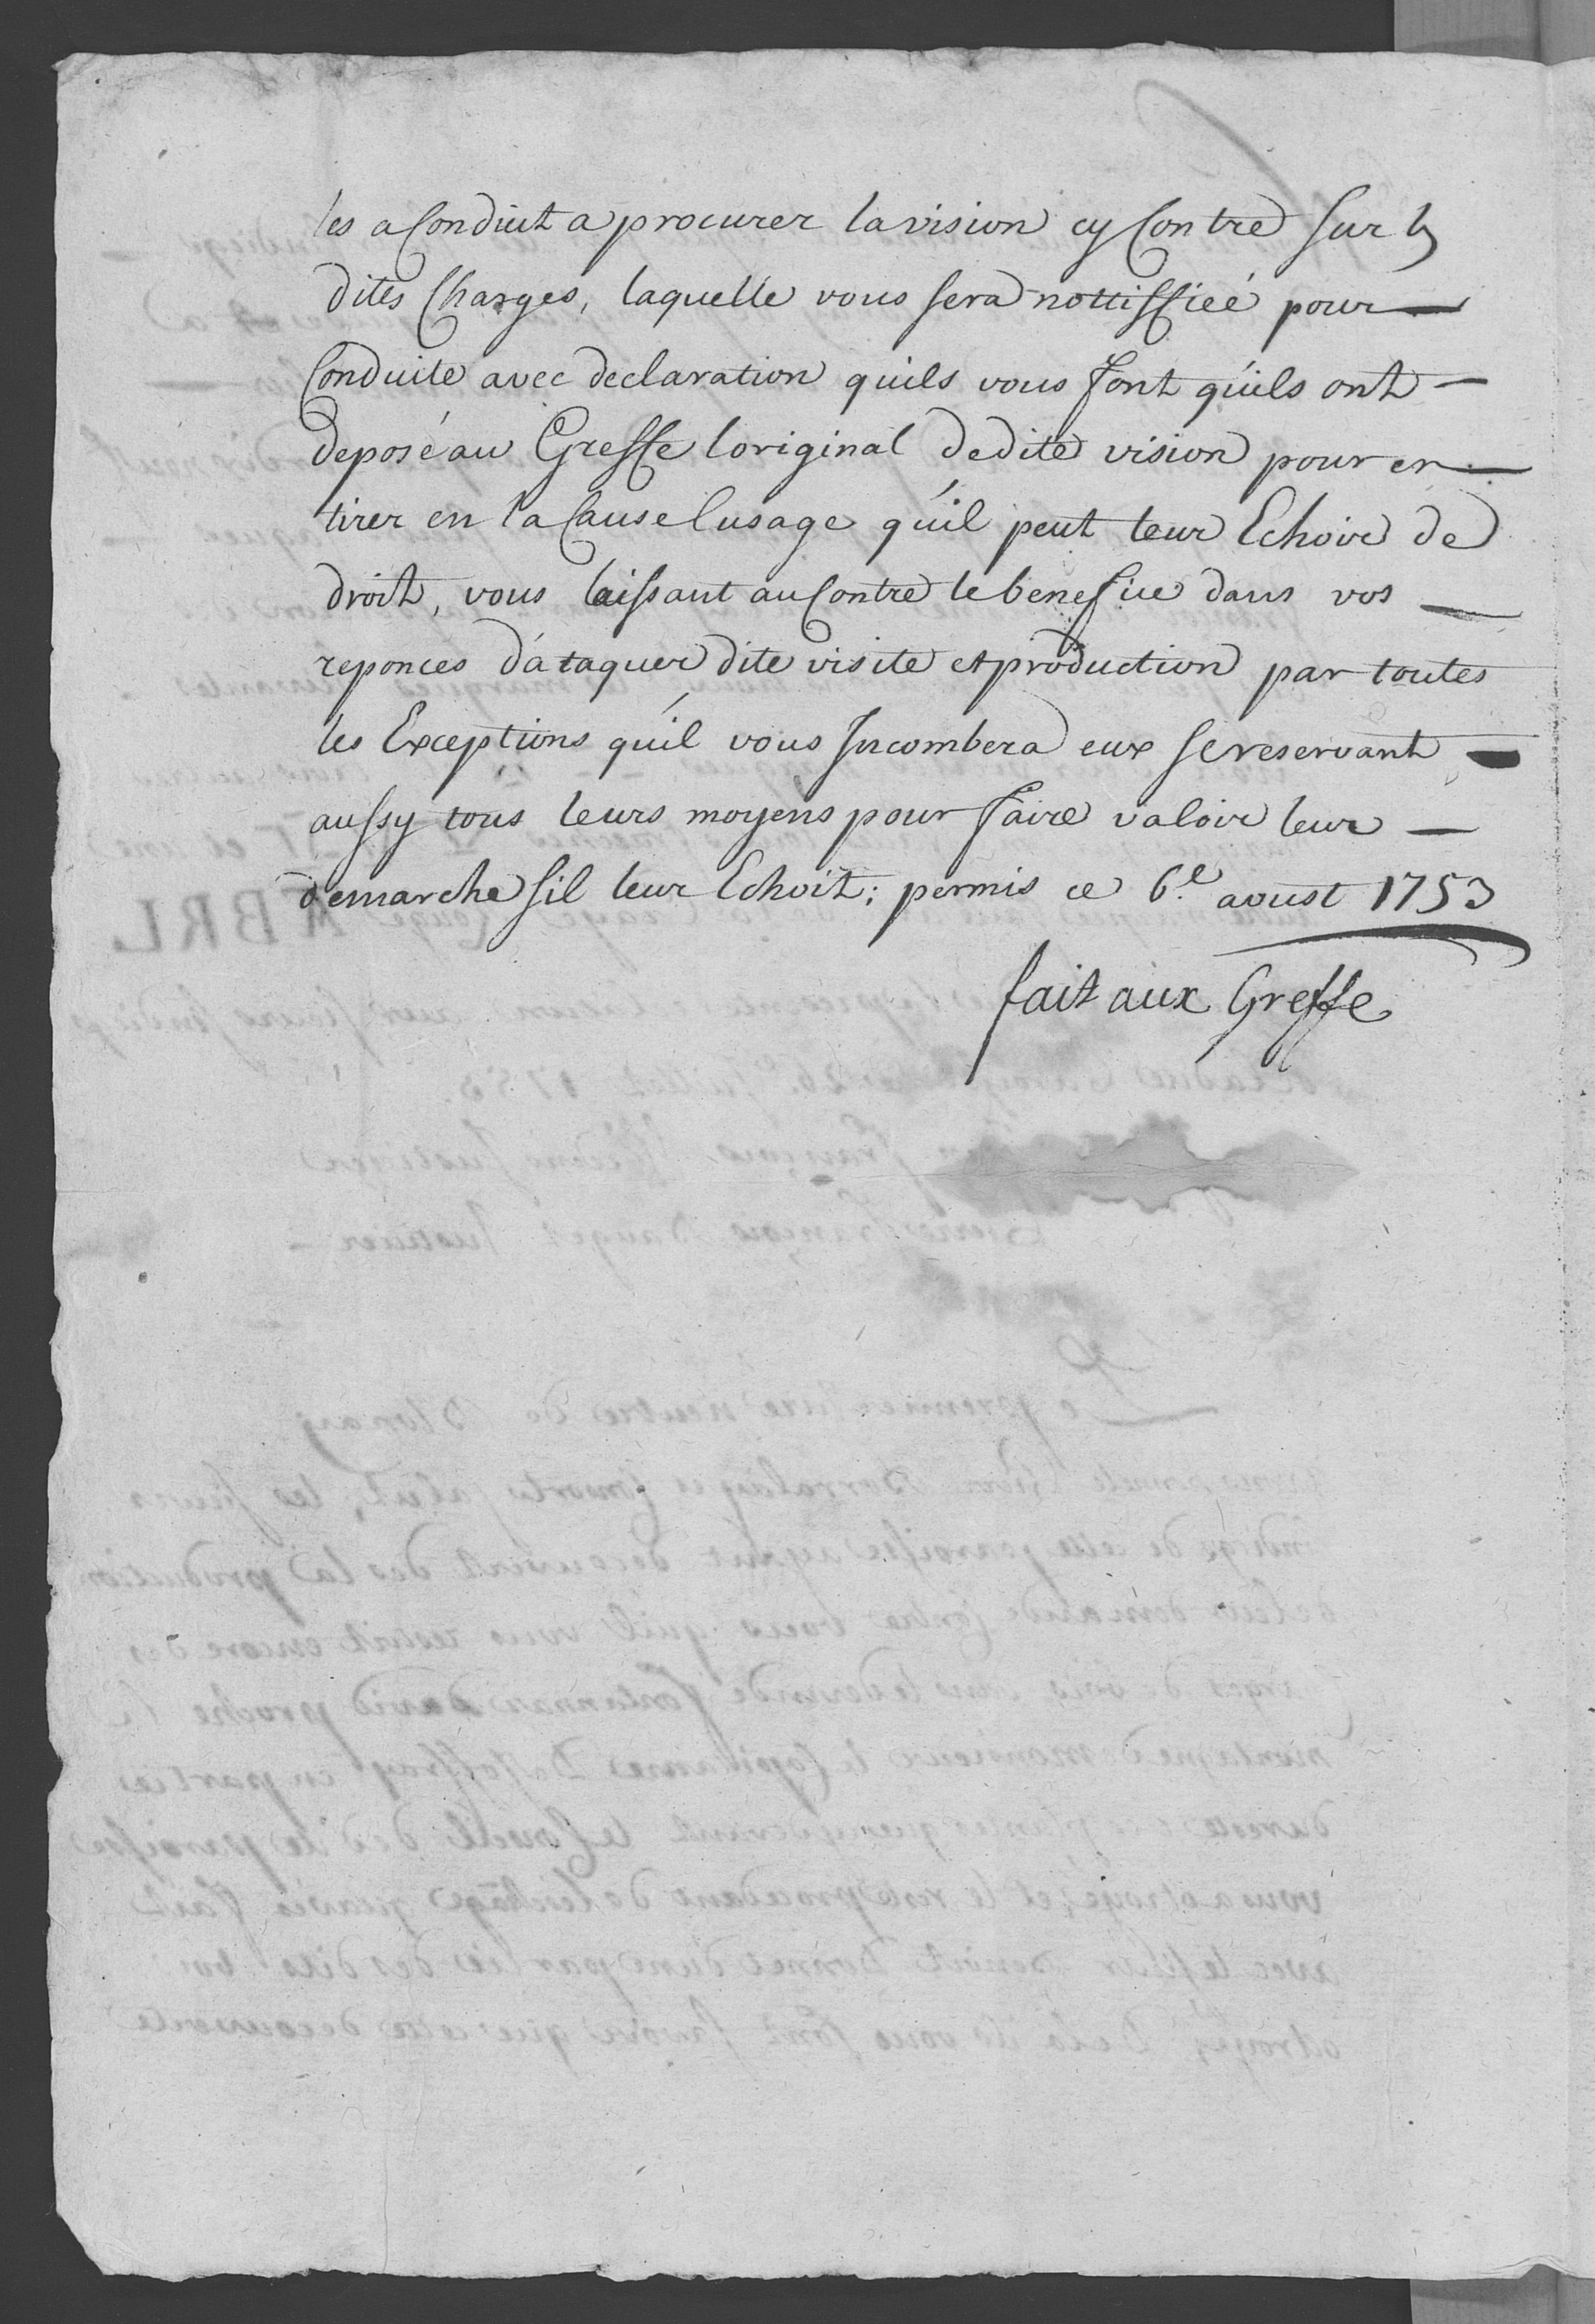 les a Conduit a procurer la vision cy Contre sur les
dites Charges, laquelle vous sera nottiffieé pour —
Conduite avec declaration quils vous font qu'ils ont —
deposé au Greffe loriginal dedite vision pour en —
tirer en la Cause lusage qu'il peut leur Echoir de
droit, vous laissant au Contre le benefice dans vos —
reponces d'ataquer dite visite et production par toutes
les Exceptions qu'il vous Incombera eux se reservant —
aussy tous leurs moyens pour faire valoir leur —
demarche sil leur Echoit; permis ce 6.e aoust 1753
fait aux Greffe